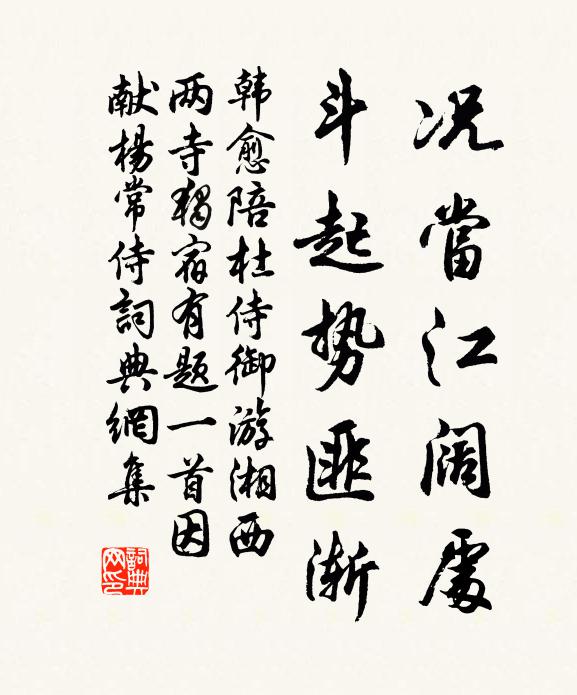 况當江阔處
斗起勢匪渐
韩愈陪杜侍御游湘西
两寺獨宿有题一首因
献楊常侍詞典網集
詞典网印